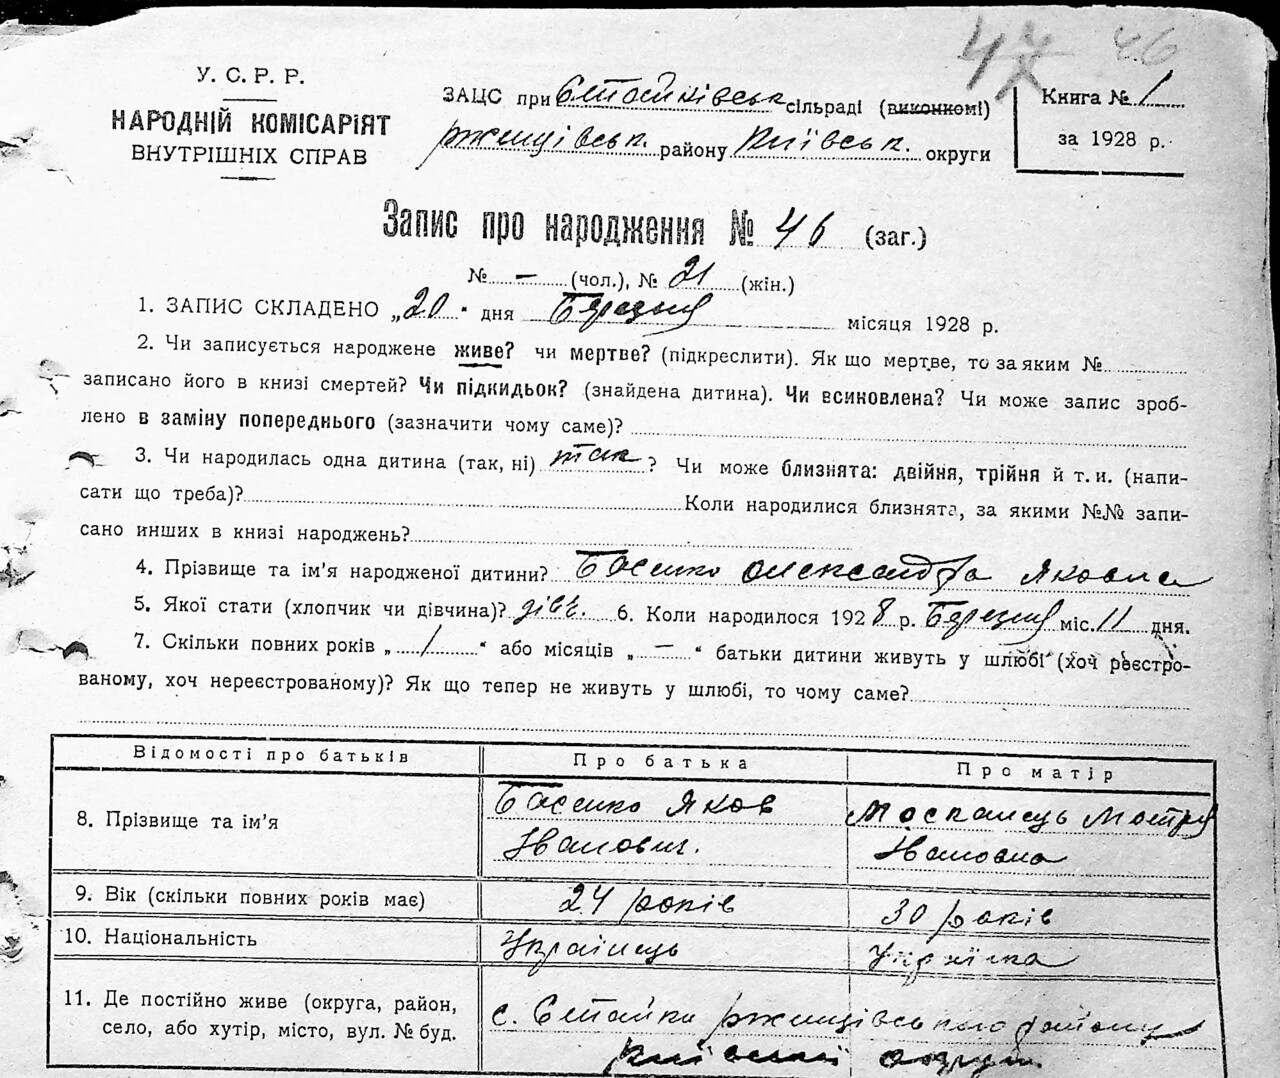 46
У. С. Р. Р.
НАРОДНІЙ КОМІСАРІЯТ
ВНУТРІШНІХ СПРАВ
ЗАЦС при Стайківськ сільраді (виконкомі)
ржищівськ. району Київськ. округи
Книга № 1
за 1928 р.
Запис про народження № 46 (заг.)
№ — (чол.), № 21 (жін.)
1. ЗАПИС СКЛАДЕНО „20“ дня Березня місяця 1928 р.
2. Чи записується народжене живе? чи мертве? (підкреслити). Як що мертве, то за яким №
записано його в книзі смертей? Чи підкидьок? (знайдена дитина). Чи всиновлена? Чи може запис зроб-
лено в заміну попереднього (зазначити чому саме)?
3. Чи народилась одна дитина (так, ні) так? Чи може близнята: двійня, трійня й т. и. (напи-
сати що треба)? Коли народилися близнята, за якими №№ запи-
сано инших в книзі народжень?
4. Прізвище та ім’я народженої дитини? Басенко Олександра Яковна
5. Якої стати (хлопчик чи дівчина)? дівч. 6. Коли народилося 1928 р. Березня міс. 11 дня.
7. Скільки повних років „1“ або місяців „—“ батьки дитини живуть у шлюбі (хоч реєстро-
ваному, хоч нереєстрованому)? Як що тепер не живуть у шлюбі, то чому саме?
Відомості про батьків Про батька Про матір
8. Прізвище та ім’я Басенко Яков Москалець Мотря
Іванович. Івановна
9. Вік (скільки повних років має) 24 років 30 років
10. Національність Українець Українка
11. Де постійно живе (округа, район, с. Стайки ржищівського району
село, або хутір, місто, вул. № буд. київської округи